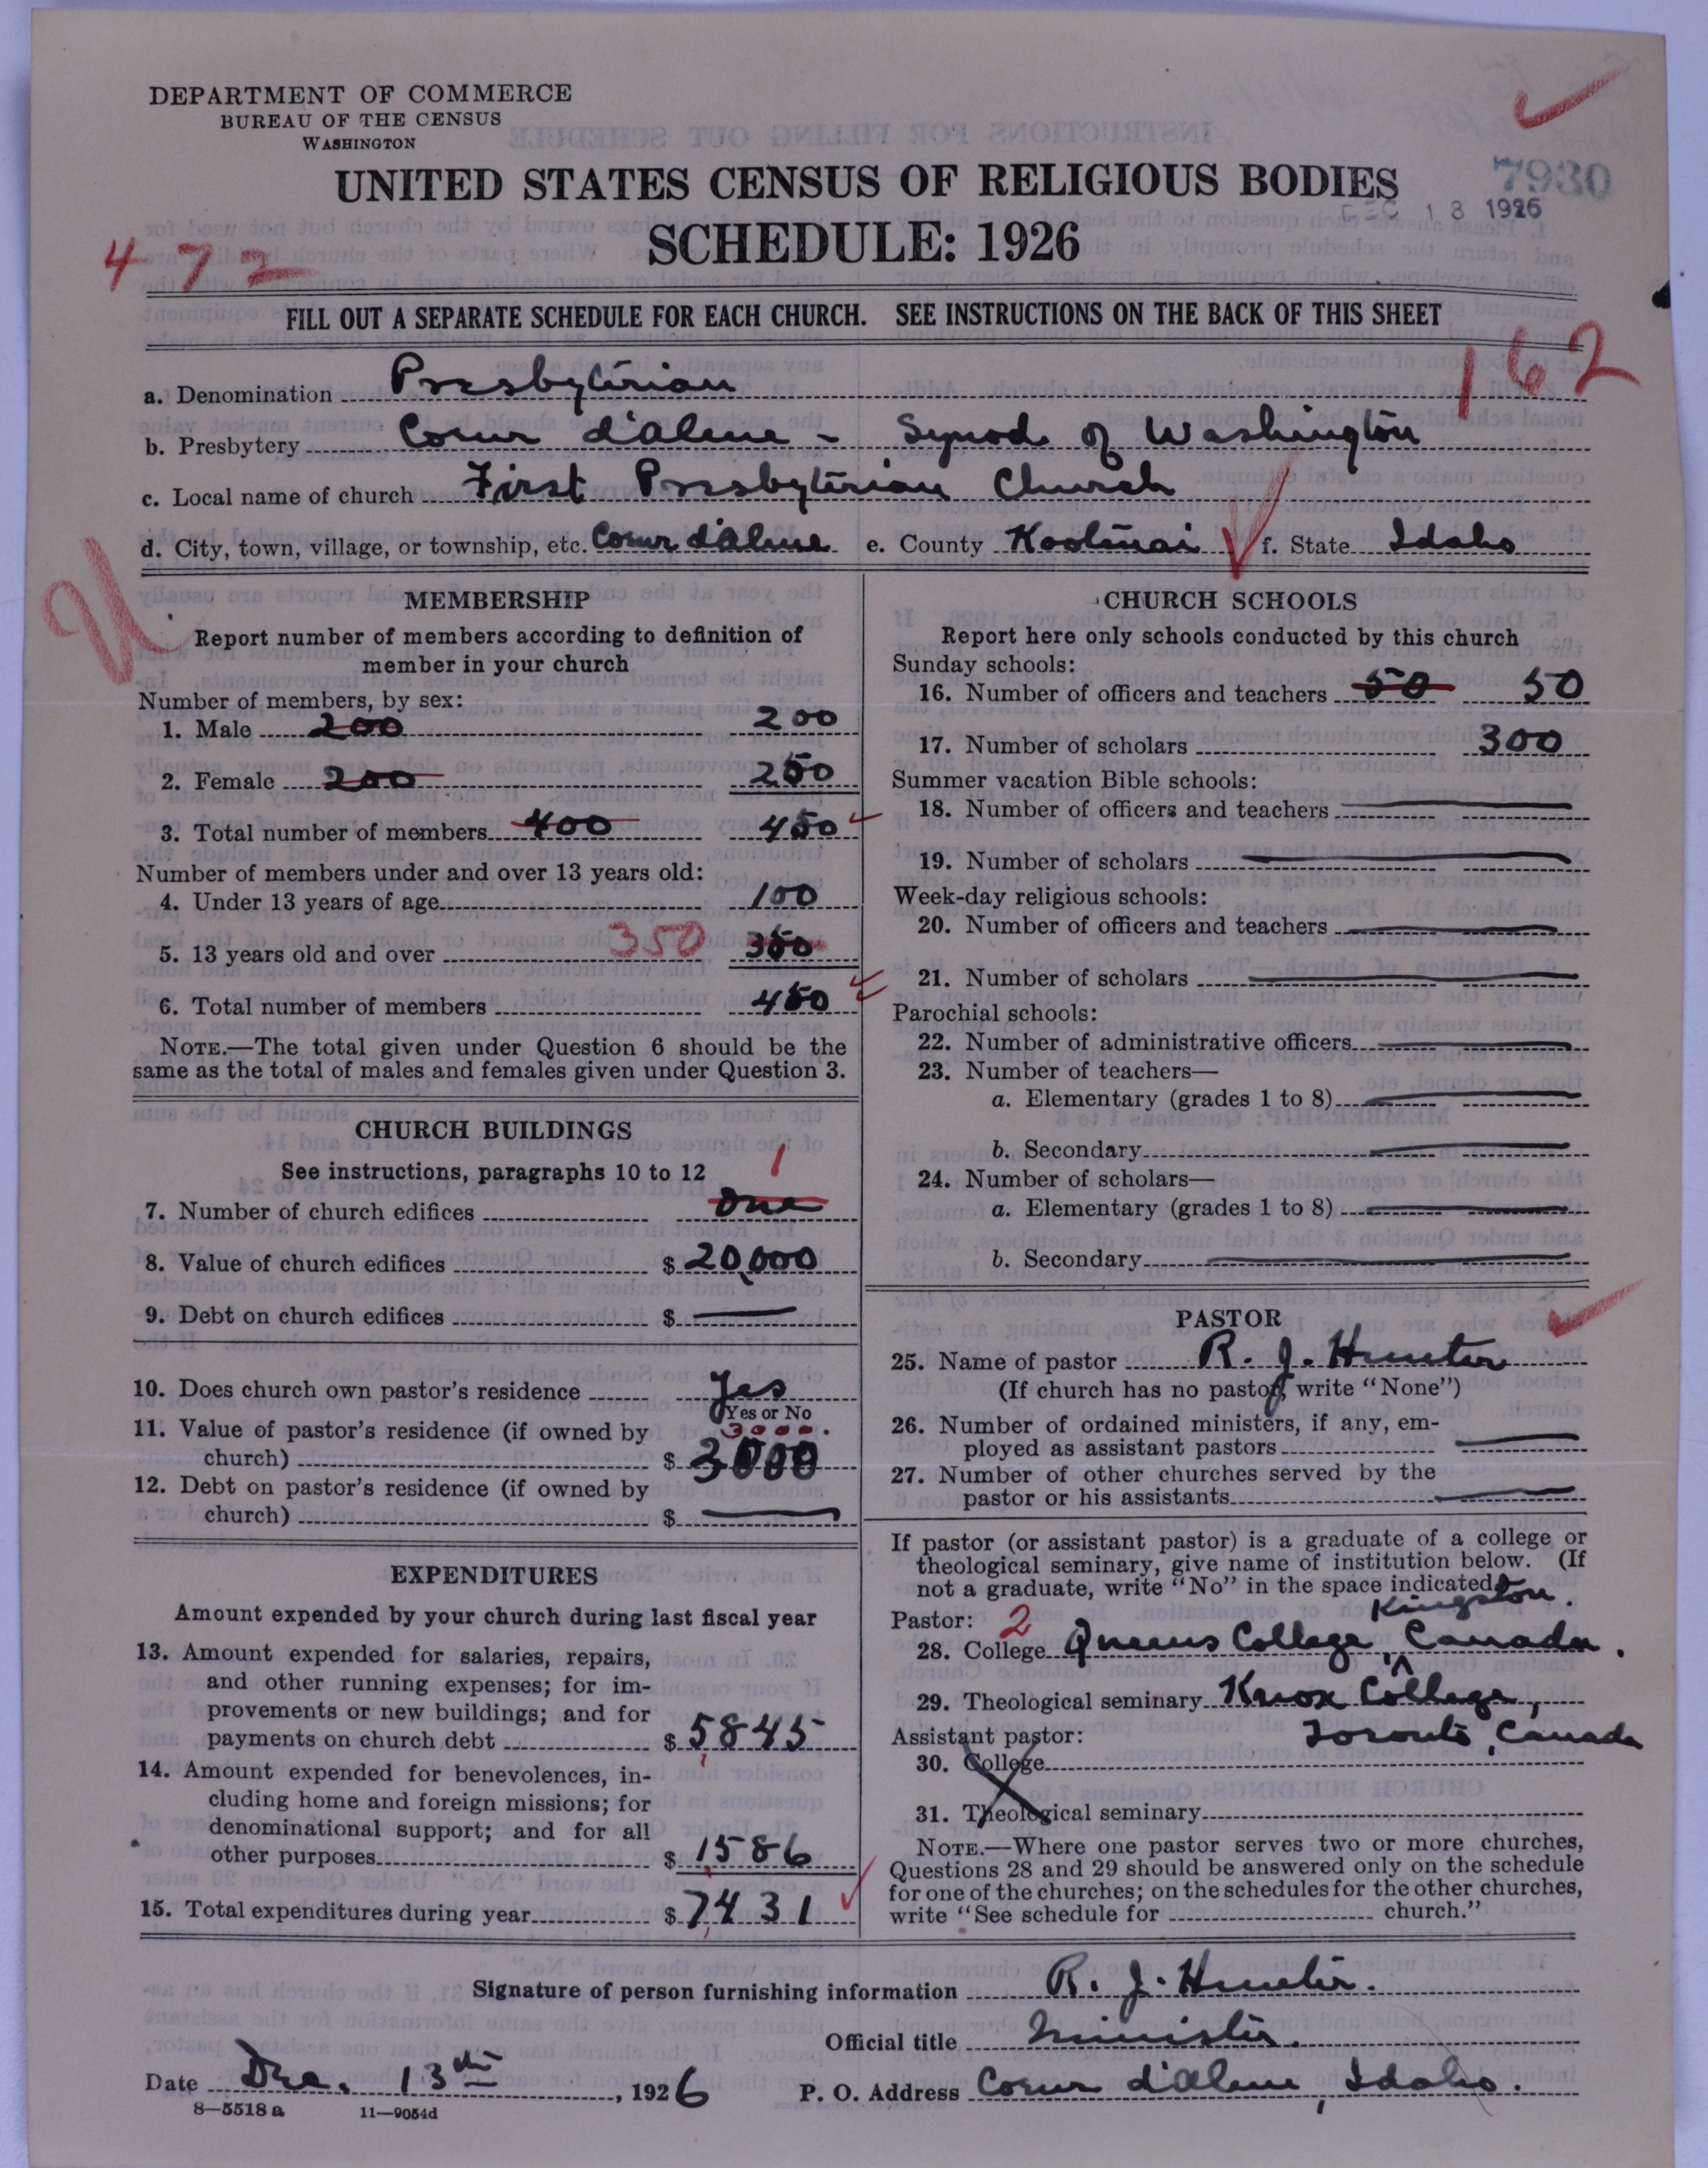 DEPARTMENT OF COMMERCE
BUREAU OF THE CENSUS
WASHINGTON
UNITED STATES CENSUS OF RELIGIOUS BODIES
7930
DEC 13 1926
SCHEDULE: 1926
472
FILL OUT A SEPARATE SCHEDULE FOR EACH CHURCH. SEE INSTRUCTIONS ON THE BACK OF THIS SHEET
162
a. Denomination Presbyterian
b. Presbytery Coeur d'Alene - Synod of Washington
c. Local name of church First Presbyterian Church
d. City, town, village, or township, etc. Coeur d'Alene e. County Kootenai f. State Idaho
MEMBERSHIP
Report number of members according to definition of
member in your church
Number of members, by sex:
1. Male 200 200
2. Female 200 250
3. Total number of members 400 450
Number of members under and over 13 years old:
4. Under 13 years of age 100
5. 13 years old and over 350 350
6. Total number of members 450
NOTE.—The total given under Question 6 should be the
same as the total of males and females given under Question 3.
CHURCH BUILDINGS
See instructions, paragraphs 10 to 12
1
7. Number of church edifices One
8. Value of church edifices $ 20,000
9. Debt on church edifices $ —
10. Does church own pastor's residence Yes
Yes or No
11. Value of pastor's residence (if owned by 3000.
church) $ 3000
12. Debt on pastor's residence (if owned by
church) $ —
EXPENDITURES
Amount expended by your church during last fiscal year
13. Amount expended for salaries, repairs,
and other running expenses; for im-
provements or new buildings; and for
payments on church debt $ 5845
14. Amount expended for benevolences, in-
cluding home and foreign missions; for
denominational support; and for all
other purposes $ 1586
15. Total expenditures during year $ 7431
CHURCH SCHOOLS
Report here only schools conducted by this church
Sunday schools:
16. Number of officers and teachers 50 50
17. Number of scholars 300
Summer vacation Bible schools:
18. Number of officers and teachers —
19. Number of scholars —
Week-day religious schools:
20. Number of officers and teachers —
21. Number of scholars —
Parochial schools:
22. Number of administrative officers —
23. Number of teachers—
a. Elementary (grades 1 to 8) —
b. Secondary —
24. Number of scholars—
a. Elementary (grades 1 to 8) —
b. Secondary —
PASTOR
25. Name of pastor R. J. Hunter
(If church has no pastor, write "None")
26. Number of ordained ministers, if any, em-
ployed as assistant pastors —
27. Number of other churches served by the
pastor or his assistants —
If pastor (or assistant pastor) is a graduate of a college or
theological seminary, give name of institution below. (If
not a graduate, write "No" in the space indicated)
Kingston.
Pastor: 2
28. College Queens College, Canada.
29. Theological seminary Knox College,
Assistant pastor: Toronto, Canada
30. College
31. Theological seminary
NOTE.—Where one pastor serves two or more churches,
Questions 28 and 29 should be answered only on the schedule
for one of the churches; on the schedules for the other churches,
write "See schedule for church."
Signature of person furnishing information R. J. Hunter.
Official title Minister.
Date Dec. 13th, 1926 P. O. Address Coeur d'Alene, Idaho.
8—5518 a 11—9054d